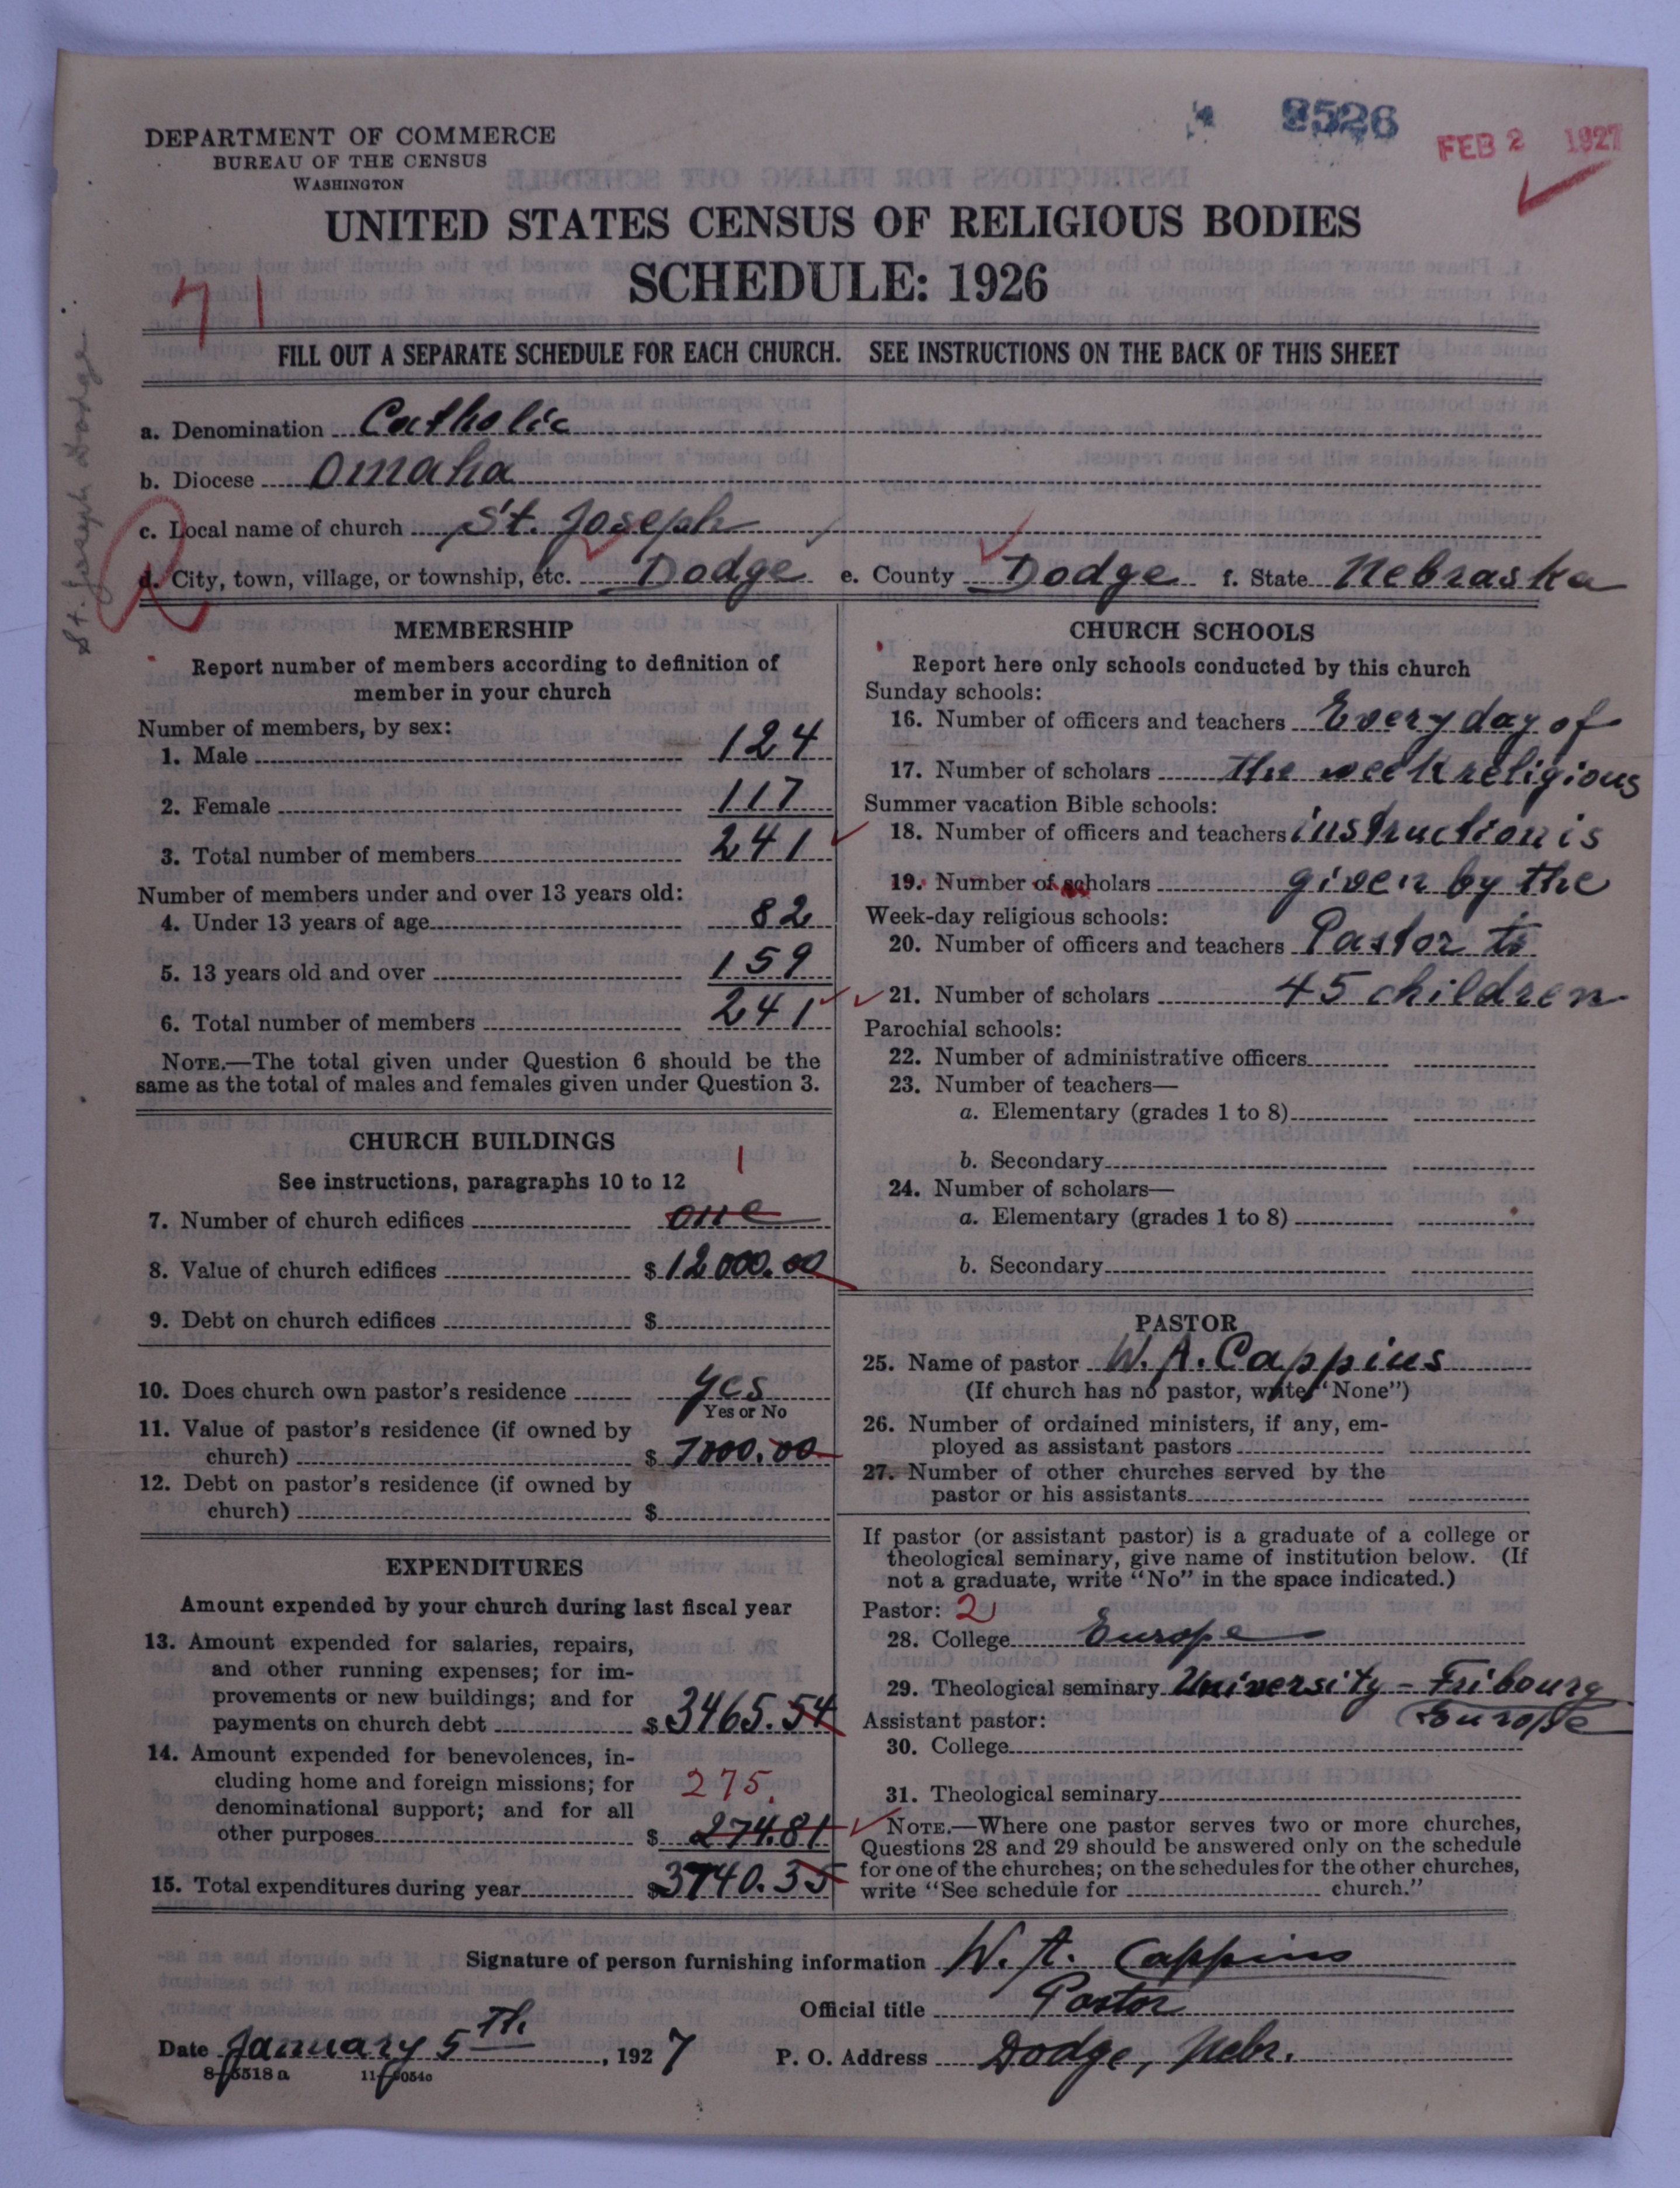 DEPARTMENT OF COMMERCE
BUREAU OF THE CENSUS
WASHINGTON
8526
FEB 2 1927
UNITED STATES CENSUS OF RELIGIOUS BODIES
SCHEDULE: 1926
71
FILL OUT A SEPARATE SCHEDULE FOR EACH CHURCH. SEE INSTRUCTIONS ON THE BACK OF THIS SHEET
St. Joseph Dodge
a. Denomination Catholic
b. Diocese Omaha
c. Local name of church St. Joseph
d. City, town, village, or township, etc. Dodge e. County Dodge f. State Nebraska
MEMBERSHIP
Report number of members according to definition of
member in your church
Number of members, by sex:
1. Male 124
2. Female 117
3. Total number of members 241
Number of members under and over 13 years old:
4. Under 13 years of age 82
5. 13 years old and over 159
6. Total number of members 241
NOTE.—The total given under Question 6 should be the
same as the total of males and females given under Question 3.
CHURCH BUILDINGS
See instructions, paragraphs 10 to 12
1
7. Number of church edifices one
8. Value of church edifices $ 12000.00
9. Debt on church edifices $
10. Does church own pastor's residence yes
Yes or No
11. Value of pastor's residence (if owned by
church) $ 7000.00
12. Debt on pastor's residence (if owned by
church) $
EXPENDITURES
Amount expended by your church during last fiscal year
13. Amount expended for salaries, repairs,
and other running expenses; for im-
provements or new buildings; and for
payments on church debt $ 3465.54
14. Amount expended for benevolences, in-
cluding home and foreign missions; for 275.
denominational support; and for all
other purposes $ 274.81
15. Total expenditures during year $ 3740.35
CHURCH SCHOOLS
Report here only schools conducted by this church
Sunday schools:
16. Number of officers and teachers Every day of
17. Number of scholars the week religious
Summer vacation Bible schools:
18. Number of officers and teachers instruction is
19. Number of scholars given by the
Week-day religious schools:
20. Number of officers and teachers Pastor to
21. Number of scholars 45 children
Parochial schools:
22. Number of administrative officers
23. Number of teachers—
a. Elementary (grades 1 to 8)
b. Secondary
24. Number of scholars—
a. Elementary (grades 1 to 8)
b. Secondary
PASTOR
25. Name of pastor W. A. Cappius
(If church has no pastor, write "None")
26. Number of ordained ministers, if any, em-
ployed as assistant pastors
27. Number of other churches served by the
pastor or his assistants
If pastor (or assistant pastor) is a graduate of a college or
theological seminary, give name of institution below. (If
not a graduate, write "No" in the space indicated.)
Pastor: 2
28. College Europe
29. Theological seminary University - Fribourg
Assistant pastor: (Europe
30. College
31. Theological seminary
NOTE.—Where one pastor serves two or more churches,
Questions 28 and 29 should be answered only on the schedule
for one of the churches; on the schedules for the other churches,
write "See schedule for church."
Signature of person furnishing information W. A. Cappius
Official title Pastor
Date January 5th, 1927 P. O. Address Dodge, Nebr.